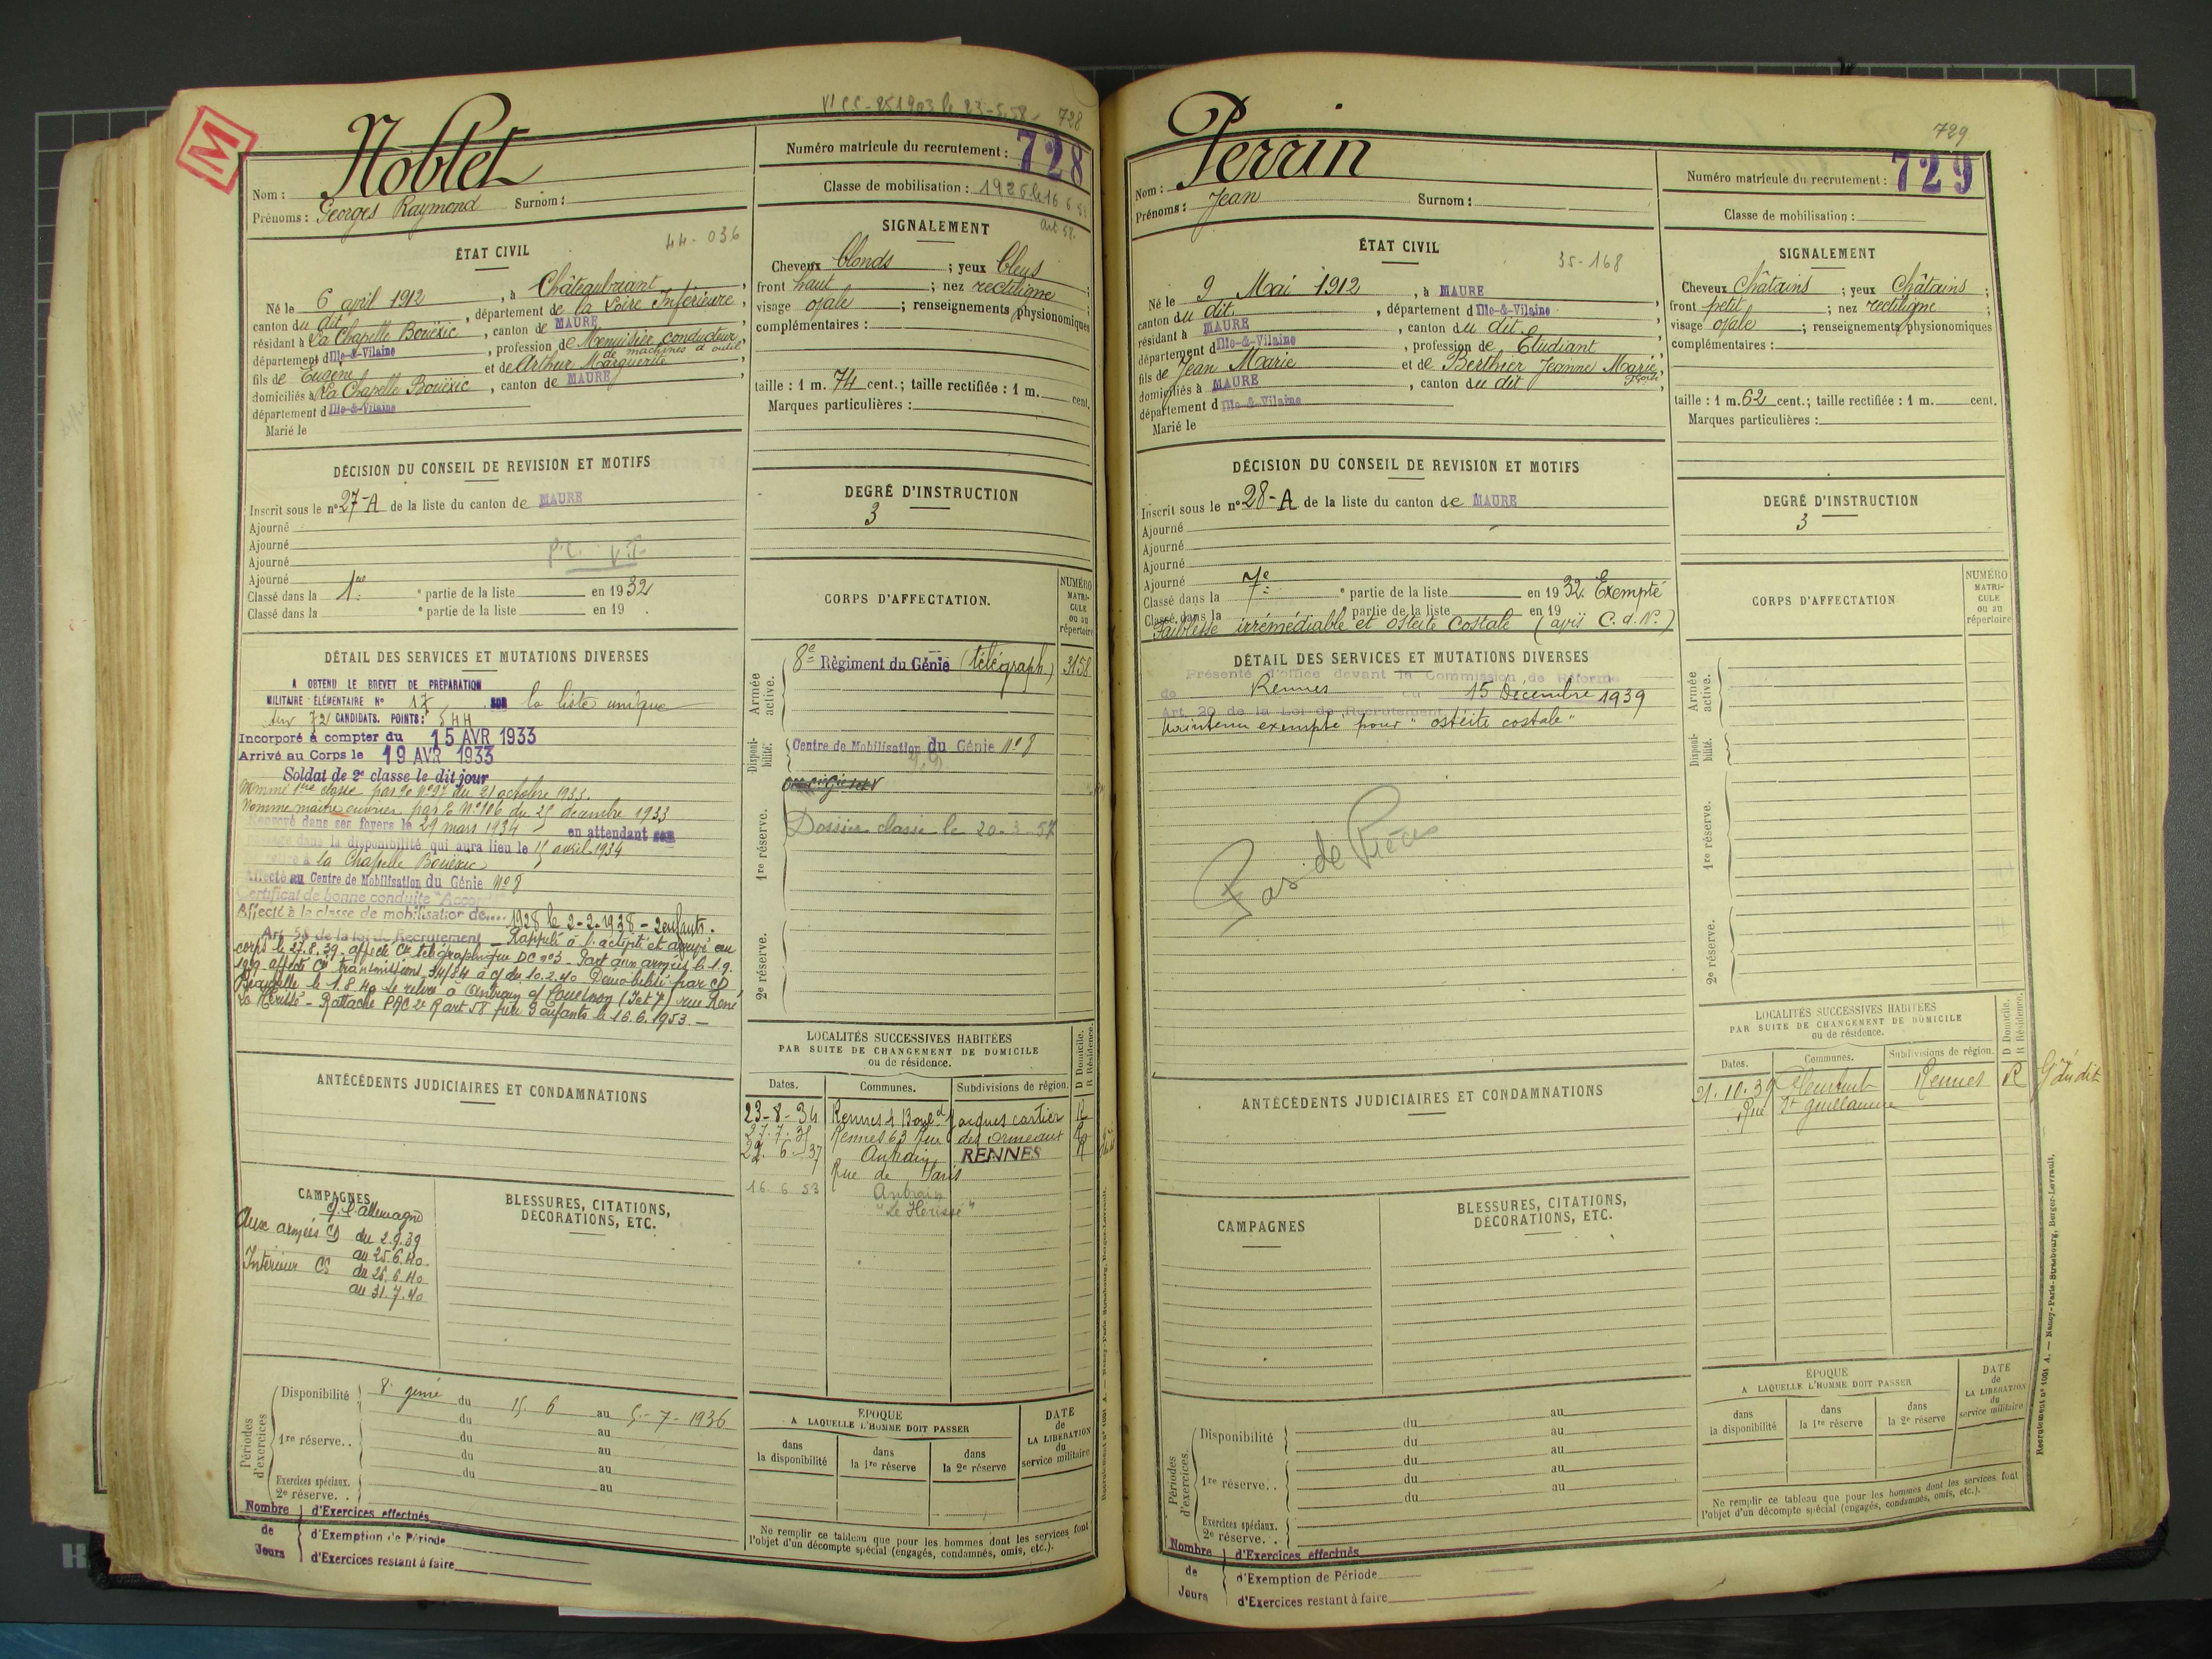 M
728
Noblet
Nom :
Prénoms : Georges Raymond Surnom :
Numéro matricule du recrutement : 728
Classe de mobilisation :
ÉTAT CIVIL
44-036
Né le 6 avril 1912, à Châteaubriant,
canton du dit, département de la Loire Inférieure,
résidant à La Chapelle Bouëxic, canton de MAURE
département d'Ille-&-Vilaine, profession de Menuisier conducteur
de machines à outil
fils de Eugène et de Arthur Marguerite
domiciliés à La Chapelle Bouëxic, canton de MAURE,
département d'Ille-&-Vilaine
Marié le
SIGNALEMENT
art 58.
Cheveux blonds ; yeux bleus ;
front haut ; nez rectiligne ;
visage ovale ; renseignements physionomiques
complémentaires :
taille : 1 m. 74 cent.; taille rectifiée : 1 m. cent.
Marques particulières :
DÉCISION DU CONSEIL DE REVISION ET MOTIFS
Inscrit sous le n° 27-A de la liste du canton de MAURE
Ajourné
Ajourné
Ajourné
Ajourné
Classé dans la 1re partie de la liste en 1932
Classé dans la partie de la liste en 19 .
DEGRÉ D'INSTRUCTION
3
DÉTAIL DES SERVICES ET MUTATIONS DIVERSES
A OBTENU LE BREVET DE PRÉPARATION
MILITAIRE ÉLÉMENTAIRE N° 17 sur la liste unique
sur 72 CANDIDATS. POINTS: 544
Incorporé à compter du 15 AVR 1933
Arrivé au Corps le 19 AVR 1933
Soldat de 2e classe le dit jour
Nommé 1re classe par O N° 97 du 21 octobre 1933.
Nommé maitre ouvrier par O N° 116 du 25 décembre 1933
Renvoyé dans ses foyers le 29 mars 1934 en attendant son
passage dans la disponibilité qui aura lieu le 15 avril 1934
Se retire à la Chapelle Bouëxic
Affecté au Centre de Mobilisation du Génie N° 8
Certificat de bonne conduite "Accordé"
Affecté à la classe de mobilisation de.... 1928 le 2-2-1938 - 2 enfants.
Art. 58 de la loi de Recrutement - Rappelé à l'activité et arrivé au
corps le 27.8.39. affecté Cie télégraphique DC n°3 - Part aux armées le 1.9.
1939 affecté Cie transmissions 34/84 à c/ du 10.2.40 Démobilisé par CD
le 1.8.40 se retire à Antrain s/ Couesnon (I et V) rue René
Le Hérissé - Rattaché PAC 2e R art 58 père 3 enfants le 16.6.1953. -
CORPS D'AFFECTATION.
NUMÉRO MATRICULE ou au répertoire
Armée active.
8e Régiment du Génie (télégraph.) 3158
Disponibilité.
Centre de Mobilisation du Génie N° 8
1re réserve.
Dossier classé le 20-3-57
2e réserve.
LOCALITÉS SUCCESSIVES HABITÉES
PAR SUITE DE CHANGEMENT DE DOMICILE
ou de résidence.
Dates. Communes. Subdivisions de région. D Domicile. R Résidence.
23-8-34 Rennes 4 Boulevd Jacques Cartier R
27.7.35 Rennes 63 Rue des Ormeaux R
22.6.37 Antrain RENNES R
Rue de Paris
16.6.53 Antrain
"Le Hérissé"
ANTÉCÉDENTS JUDICIAIRES ET CONDAMNATIONS
CAMPAGNES
c/ l'allemagne
Aux armées CD du 2.9.39
au 25.6.40.
Intérieur CS du 26.6.40
au 31.7.40
BLESSURES, CITATIONS,
DÉCORATIONS, ETC.
Périodes d'exercices
Disponibilité 8e génie du 15 6 au 5-7-1936
du au
1re réserve.. du au
du au
du au
Exercices spéciaux.
2e réserve. . au
Nombre de Jours
d'Exercices effectués
d'Exemption de Période
d'Exercices restant à faire
ÉPOQUE
A LAQUELLE L'HOMME DOIT PASSER
dans la disponibilité
dans la 1re réserve
dans la 2e réserve
DATE de LA LIBÉRATION du service militaire
Ne remplir ce tableau que pour les hommes dont les services font
l'objet d'un décompte spécial (engagés, condamnés, omis, etc.).
729
Perrin
Nom :
Prénoms : Jean Surnom :
Numéro matricule du recrutement : 729
Classe de mobilisation :
ÉTAT CIVIL
35-168
Né le 9 Mai 1912, à MAURE,
canton du dit, département d'Ille-&-Vilaine,
résidant à MAURE, canton du dit,
département d'Ille-&-Vilaine, profession de Etudiant
fils de Jean Marie et de Berthier Jeanne Marie
domiciliés à MAURE, canton du dit,
département d'Ille-&-Vilaine
Marié le
SIGNALEMENT
Cheveux Châtains ; yeux Châtains ;
front petit ; nez rectiligne ;
visage ovale ; renseignements physionomiques
complémentaires :
taille : 1 m. 62 cent.; taille rectifiée : 1 m. cent.
Marques particulières :
DÉCISION DU CONSEIL DE REVISION ET MOTIFS
Inscrit sous le n° 28-A de la liste du canton de MAURE
Ajourné
Ajourné
Ajourné
Ajourné
Classé dans la 7e partie de la liste en 1932. Exempté
Classé dans la partie de la liste en 19
Faiblesse irrémédiable et ostéite costale (avis C.d.R.)
DEGRÉ D'INSTRUCTION
3
DÉTAIL DES SERVICES ET MUTATIONS DIVERSES
Présenté d'office devant la Commission de Réforme
de Rennes du 15 Décembre 1939
Art. 20 de la Loi de Recrutement
Maintenu exempté pour "ostéite costale"
Pas de Pièces
CORPS D'AFFECTATION
NUMÉRO MATRICULE ou au répertoire
Armée active.
Disponibilité.
1re réserve.
2e réserve.
LOCALITÉS SUCCESSIVES HABITÉES
PAR SUITE DE CHANGEMENT DE DOMICILE
ou de résidence.
Dates. Communes. Subdivisions de région. D Domicile. R Résidence.
21.10.39 Pleurtuit Rennes R Gd du dit
Rue St Guillaume
ANTÉCÉDENTS JUDICIAIRES ET CONDAMNATIONS
CAMPAGNES
BLESSURES, CITATIONS,
DÉCORATIONS, ETC.
Périodes d'exercices.
Disponibilité du au
du au
du au
1re réserve.. du au
du au
Exercices spéciaux.
2e réserve. .
Nombre de Jours
d'Exercices effectués
d'Exemption de Période
d'Exercices restant à faire
ÉPOQUE
A LAQUELLE L'HOMME DOIT PASSER
dans la disponibilité
dans la 1re réserve
dans la 2e réserve
DATE de LA LIBÉRATION du service militaire
Ne remplir ce tableau que pour les hommes dont les services font
l'objet d'un décompte spécial (engagés, condamnés, omis, etc.).
Recrutement N° 1001 A. — Nancy-Paris-Strasbourg, Berger-Levrault.